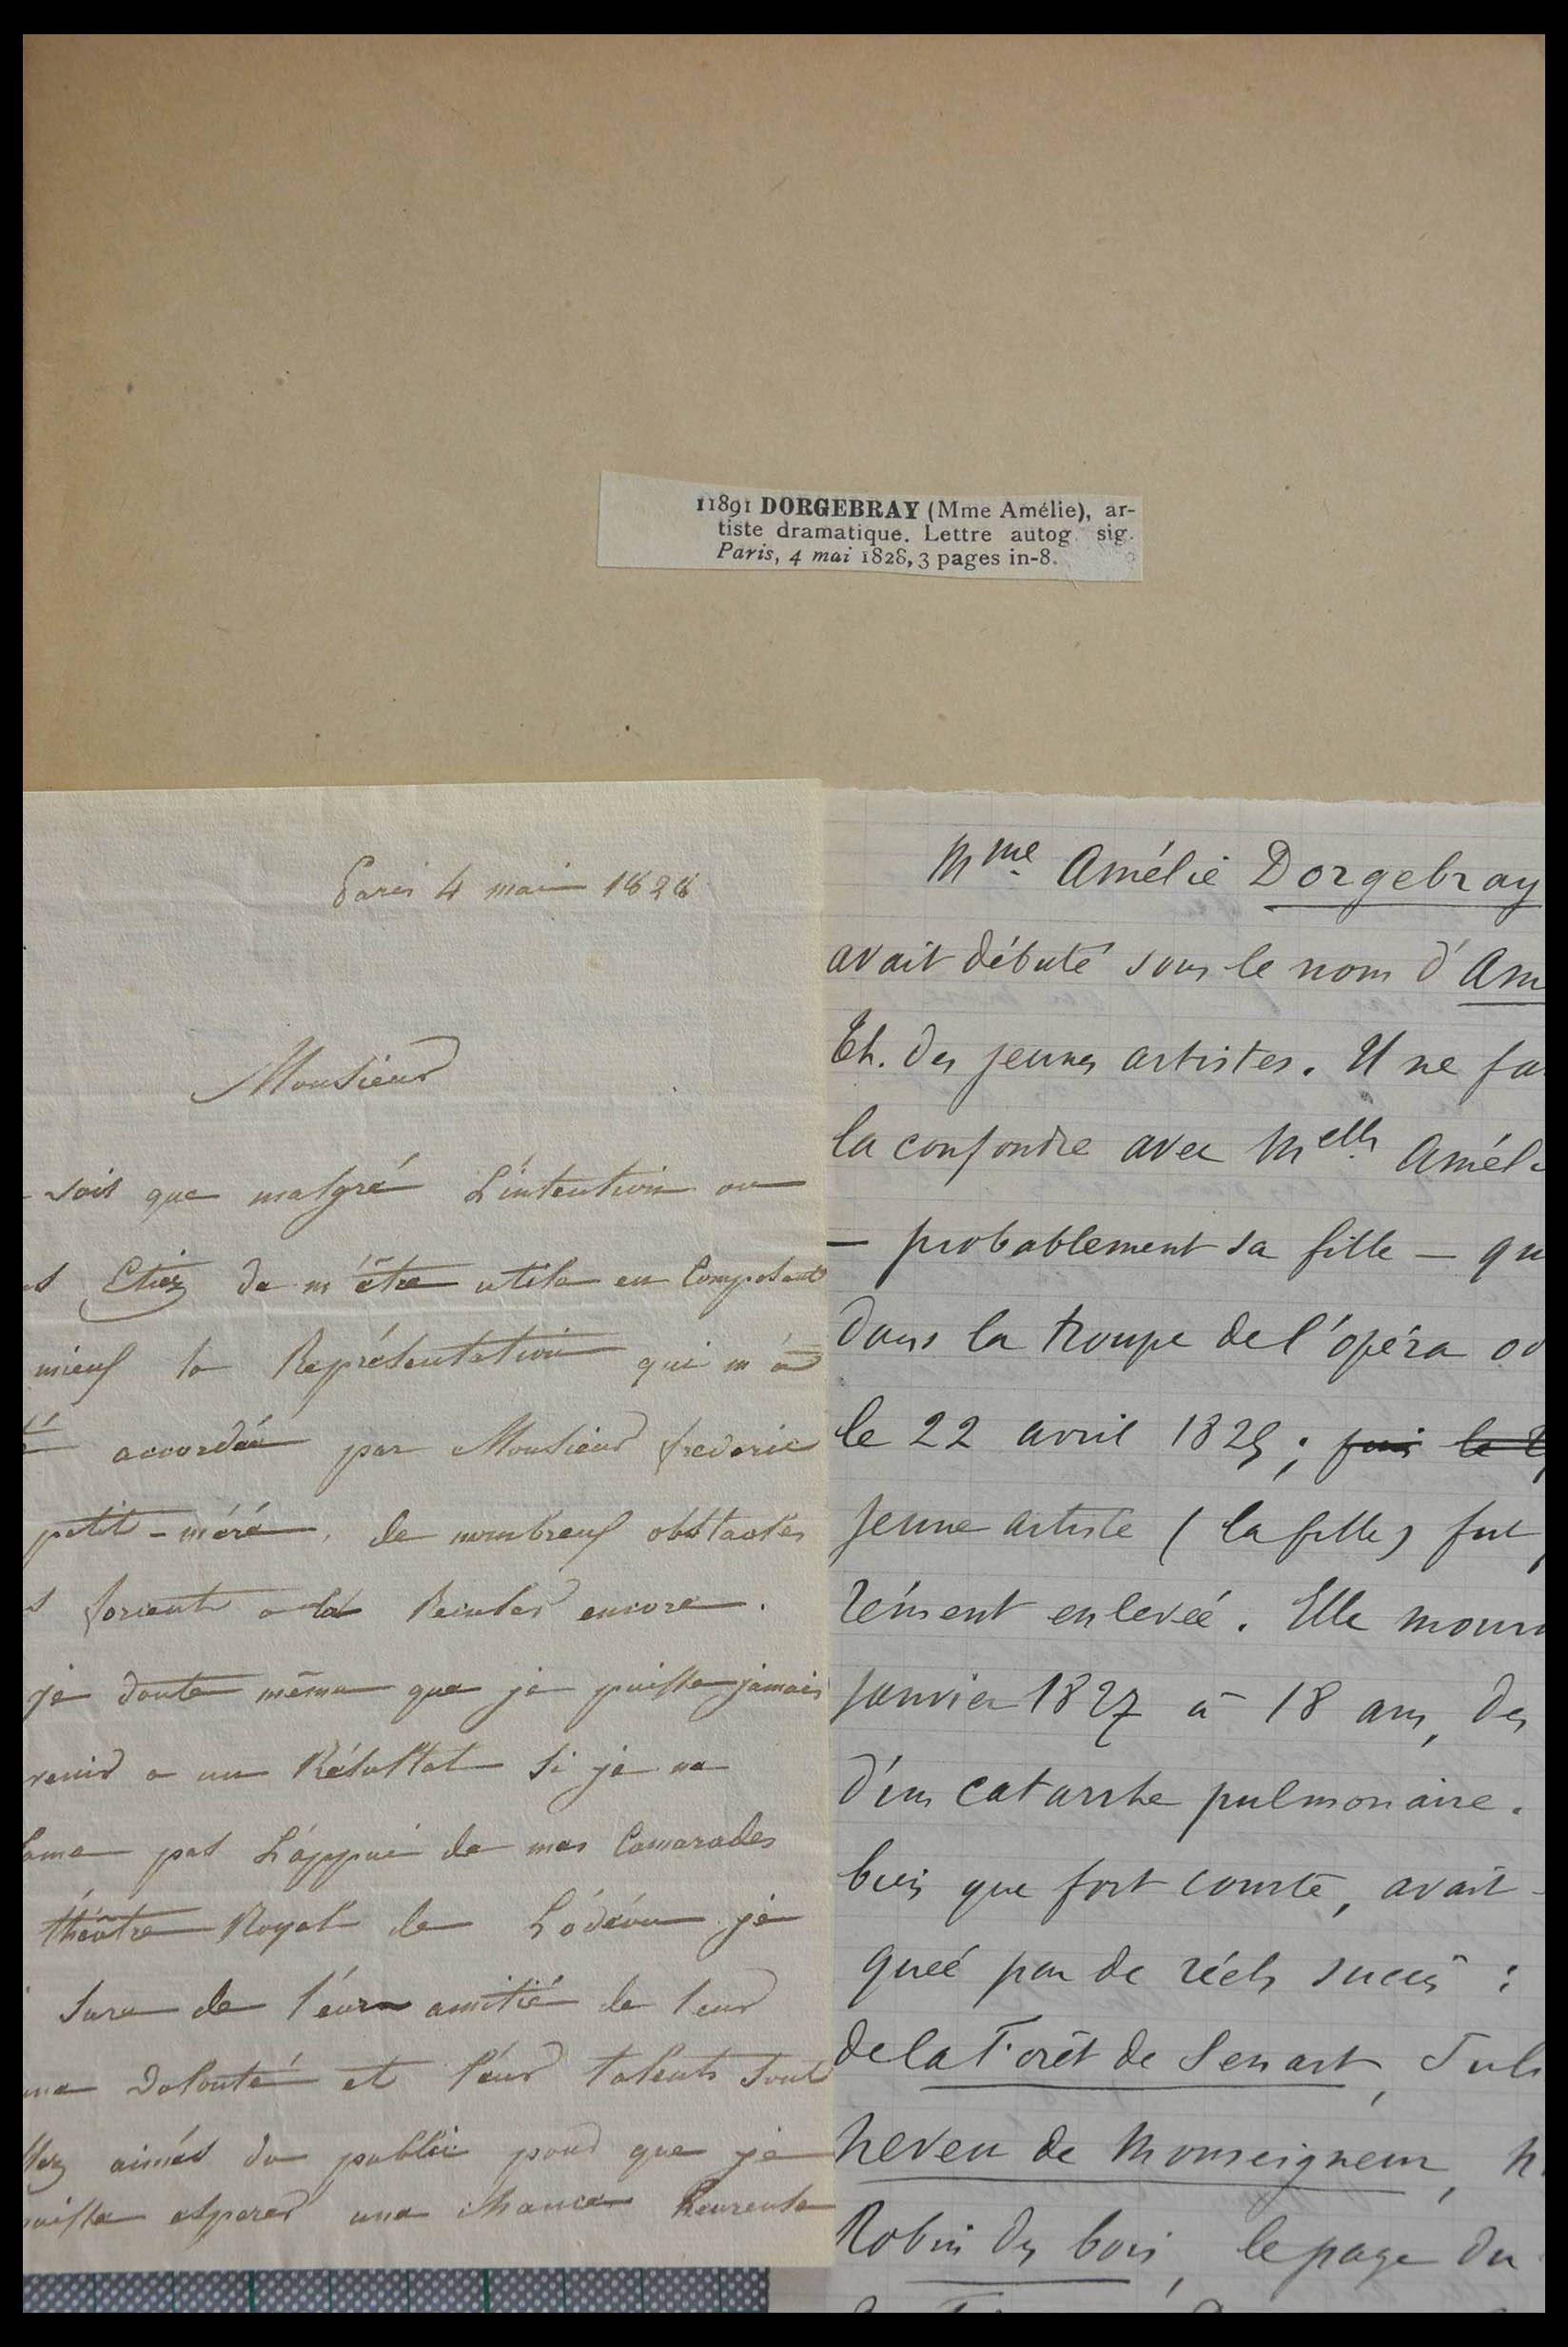 11891 DORGEBRAY (Mme Amélie), ar-
tiste dramatique. Lettre autog. sig.
Paris, 4 mai 1828, 3 pages in-8.
Paris 4 mai 1828
Monsieur
soit que malgré L'intention ou
Etiez de m'être utile en Composant
mieux la Représentation qui m'a
accordée par Monsieur frederic
petit-méré, de nombreux obstacles
forcent a la Reculer encore.
je doute même que je puisse jamais
venir a un Résultat si je ne
pas L'appui de mes Camarades
théâtre Royal de L'odéon je
Sure de leur amitié de leur
volonté et leur talents sont
aimés du public pour que je
puisse esperer une chance heureuse
Mme Amélie Dorgebray
avait débuté sous le nom d'Am
Th. des jeunes artistes. Il ne fa
la confondre avec Melle Améli
— probablement sa fille — qu
dans la troupe de l'opéra
le 22 avril 1825 ; puis le
jeune artiste (la fille) fut
rément enlevée. Elle mour
janvier 1827 à 18 ans, des
d'un catarrhe pulmonaire.
bien que fort courte, avait
quée par de réels succès :
de la Forêt de Senart,
neveu de Monseigneur,
Robin des bois, le page du